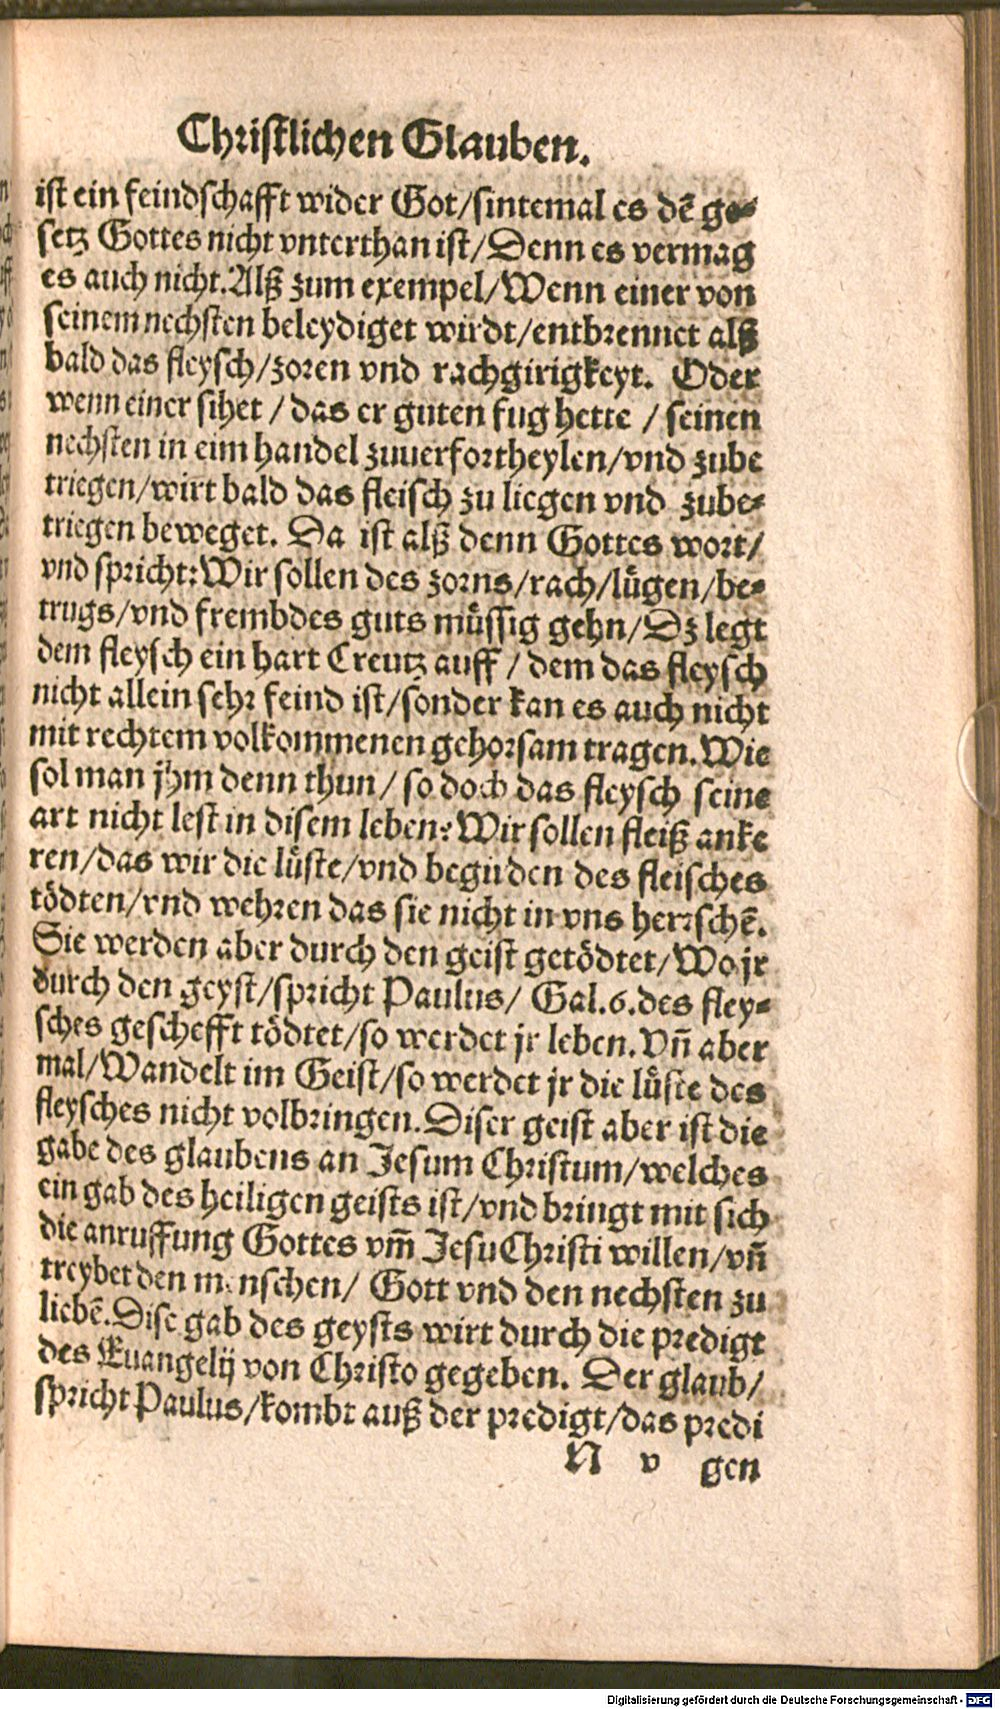 Christlichen Glauben.
ist ein feindschafft wider Got/sintemal es dẽ ge-
setz Gottes nicht vnterthan ist/Denn es vermag
es auch nicht. Alß zum exempel/Wenn einer von
seinem nechsten beleydiget wirdt/entbrennet alß
bald das fleysch/zoren vnd rachgirigkeyt. Oder
wenn einer sihet / das er guten fug hette / seinen
nechsten in eim handel zuuerfortheylen/vnd zube
triegen/wirt bald das fleisch zu liegen vnd zube-
triegen beweget. Da ist alß denn Gottes wort/
vnd spricht: Wir sollen des zorns/rach/lügen/be-
trugs/vnd frembdes guts müssig gehn/Dz legt
dem fleysch ein hart Creutz auff / dem das fleysch
nicht allein sehr feind ist/sonder kan es auch nicht
mit rechtem volkommenen gehorsam tragen. Wie
sol man jhm denn thun / so doch das fleysch seine
art nicht lest in disem leben: Wir sollen fleiß anke
ren/das wir die lüste/vnd begirden des fleisches
tödten/vnd wehren das sie nicht in vns herrschẽ.
Sie werden aber durch den geist getödtet/Wo jr
durch den geyst/spricht Paulus/ Gal.6.des fley-
sches geschefft tödtet/so werdet jr leben. Vñ aber
mal/Wandelt im Geist/so werdet jr die lüste des
fleysches nicht volbringen. Diser geist aber ist die
gabe des glaubens an Jesum Christum/welches
ein gab des heiligen geists ist/vnd bringt mit sich
die anruffung Gottes vm̃ Jesu Christi willen/vñ
treybet den menschen/ Gott vnd den nechsten zu
liebẽ. Dise gab des geysts wirt durch die predigt
des Euangelij von Christo gegeben. Der glaub/
spricht Paulus/kombt auß der predigt/das predi
N v gen
Digitalisierung gefördert durch die Deutsche Forschungsgemeinschaft - DFG